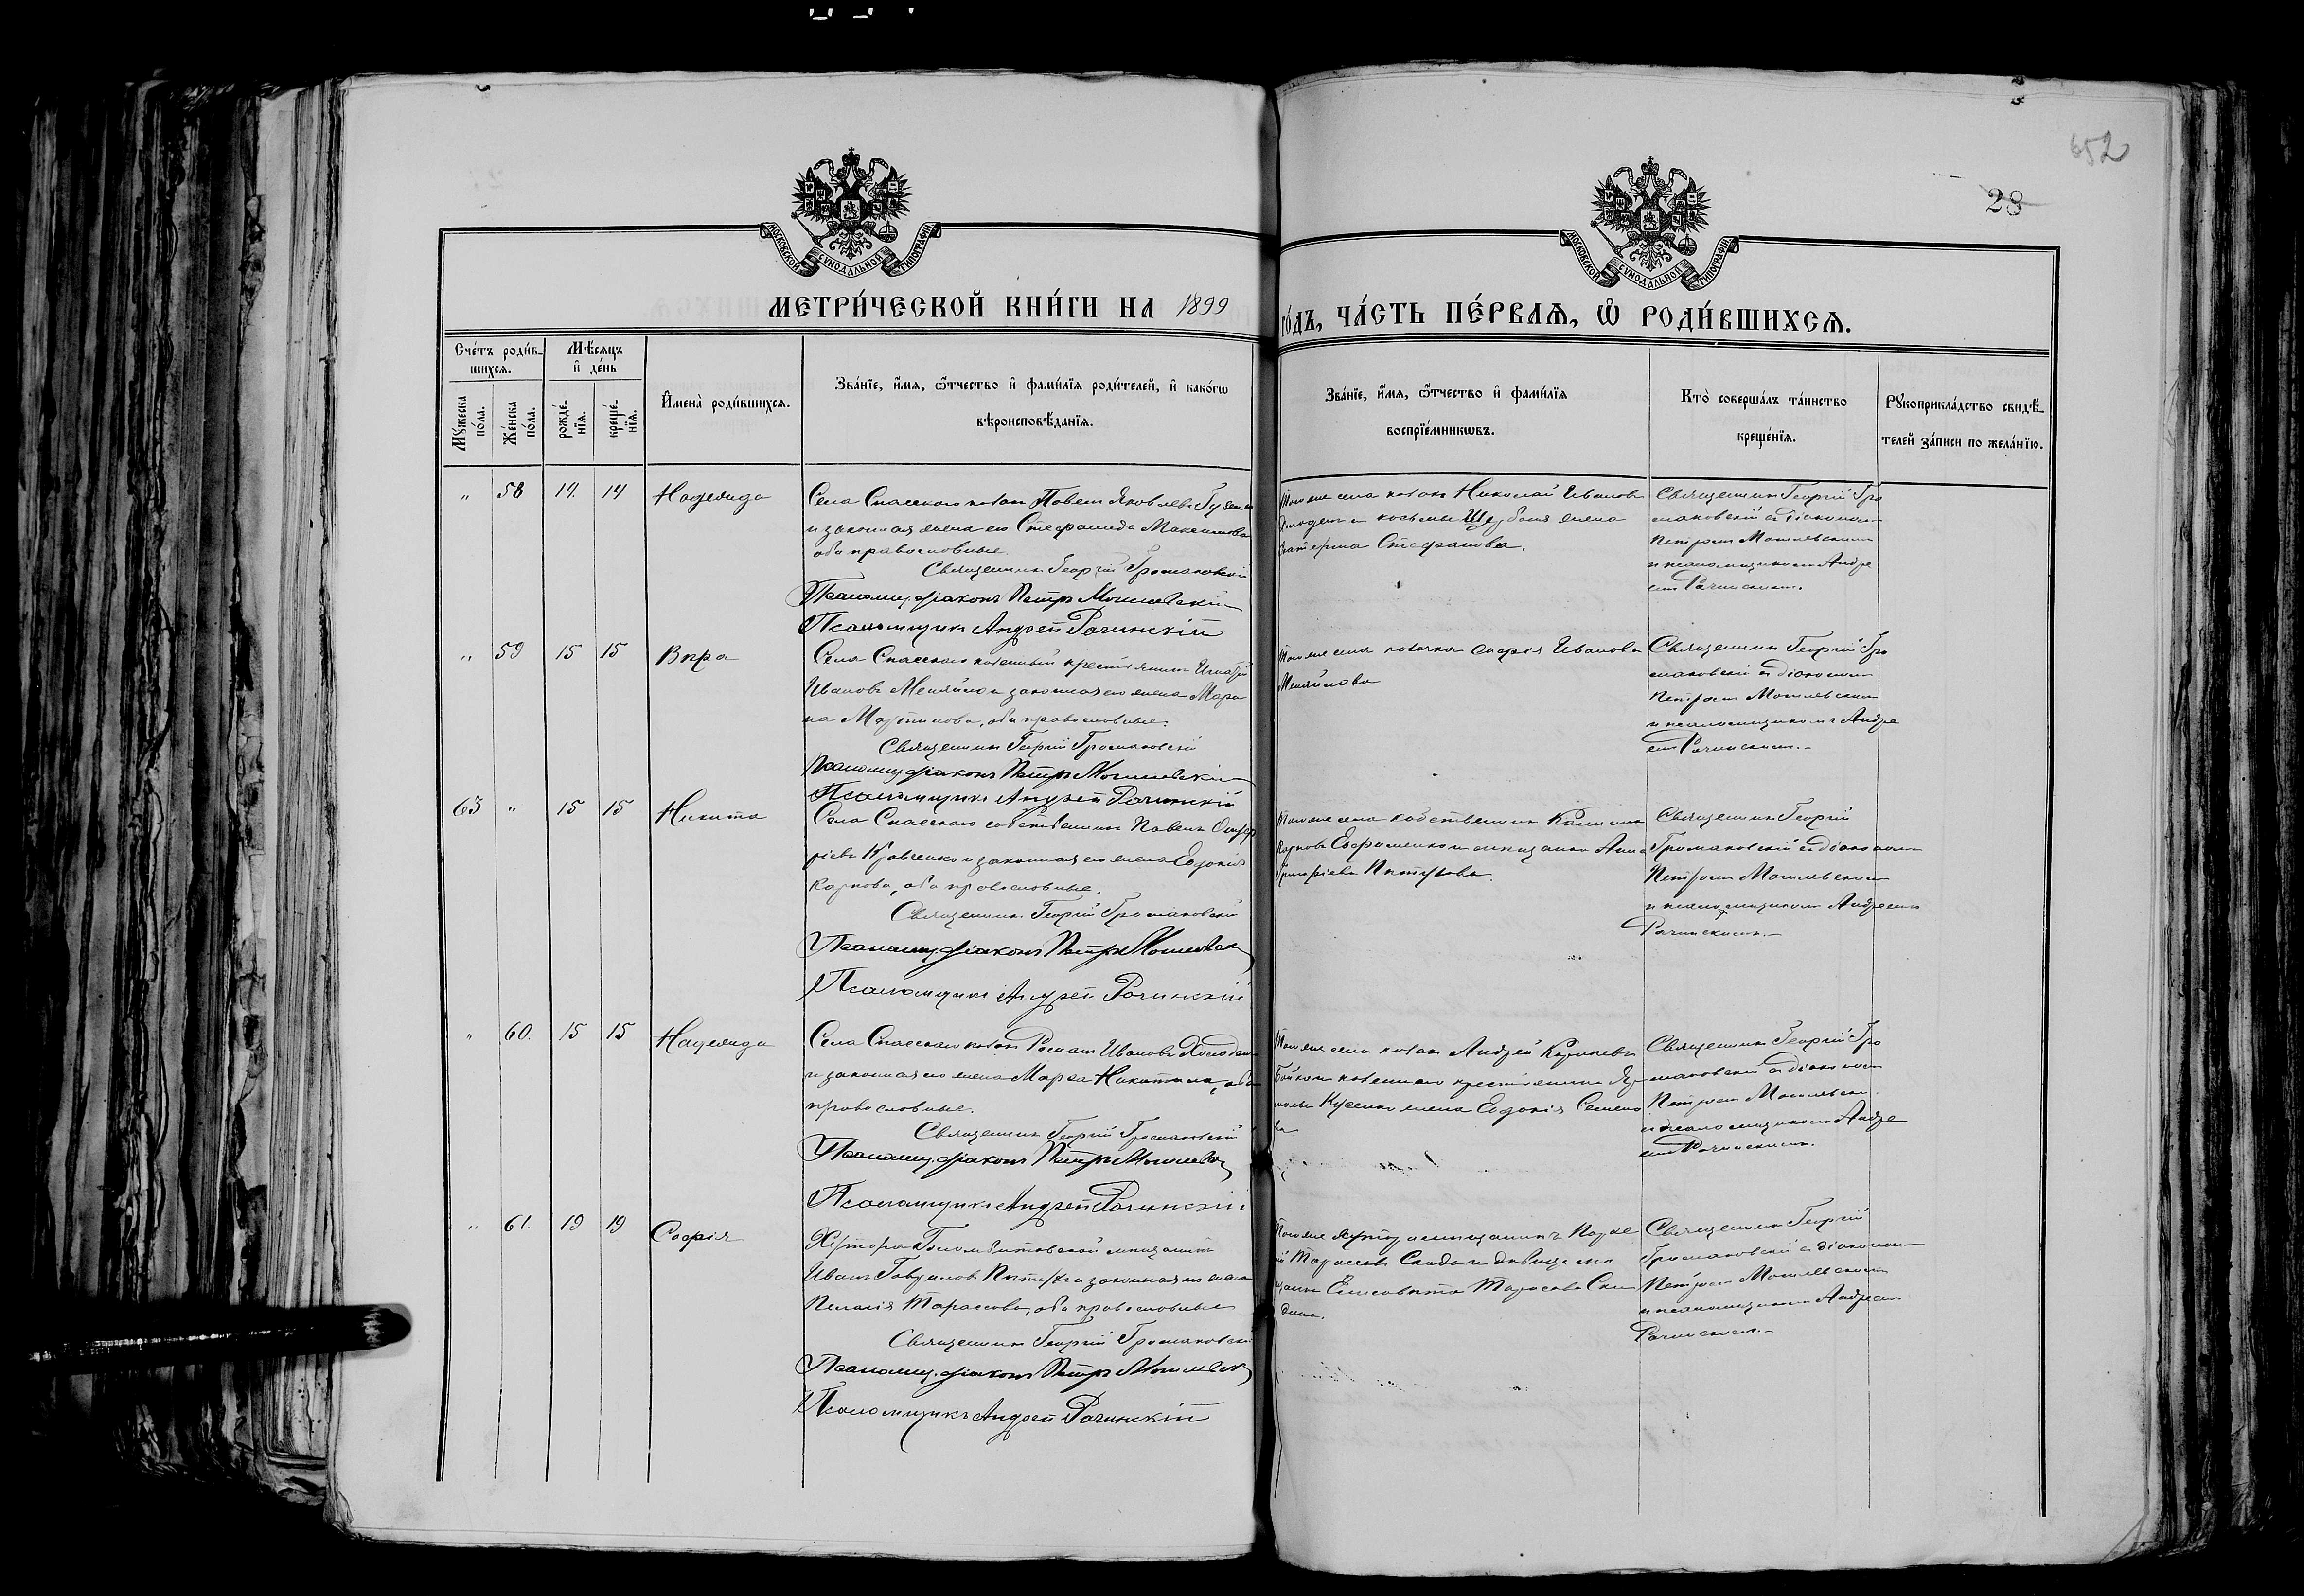 652
28
МОСКОВСКОЙ СУНОДАЛЬНОЙ ТИПОГРАФІИ
МОСКОВСКОЙ СУНОДАЛЬНОЙ ТИПОГРАФІИ
МЕТРИ́ЧЕСКОЙ КНИ́ГИ НА 1899
ГО́ДЪ, ЧА́СТЬ ПЕ́РВАѦ, Ѡ҆ РОДИ́ВШИХСѦ.
Сче́тъ роди́в-
шихсѧ.
Мѣ́сѧцъ
и҆ де́нь
Мꙋ́жеска
по́ла.
Же́нска
по́ла.
рожде́-
нїѧ.
креще́-
нїѧ.
И҆мена̀ роди́вшихсѧ.
Зва́нїе, и҆́мѧ, ѻ҆́тчество и҆ фами́лїѧ роди́телей, и҆ како́гѡ
вѣроисповѣ́данїѧ.
Зва́нїе, и҆́мѧ, ѻ҆́тчество и҆ фами́лїѧ
воспрїе́мникѡвъ.
Кто̀ соверша́лъ та́инство
креще́нїѧ.
Рꙋкоприкла́дство свидѣ́-
телей за́писи по жела́нїю.
„ 58 14. 14 Надежда
Села Спасскаго козакъ Павелъ Яковлевъ
и законная жена его Стефанида Максимова
оба православные.
Священникъ Георгій Громаковскій
Псаломщ. діаконъ Петръ Могилевскій
Псаломщикъ Андрей Рачинскій
Того же села козакъ Николай Ивановъ
жена
Екатерина Стефанова.
Священникъ Георгій Гро
маковскій съ діакономъ
Петромъ Могилевскимъ
и псаломщикомъ Андре
емъ Рачинскимъ.
„ 59 15 15 Вѣра
Села Спасскаго казенный крестьянинъ Игнатій
Ивановъ Меняйло и законная его жена Мари
на Мартинова, оба православные.
Священникъ Георгій Громаковскій
Псаломщ. діаконъ Петръ Могилевскій
Псаломщикъ Андрей Рачинскій
Того же села козачка Софія Иванова
Меняйлова
Священникъ Георгій Гро
маковскій съ діакономъ
Петромъ Могилевскимъ
и псаломщикомъ Андре
емъ Рачинскимъ.-
63 „ 15 15 Никита
Села Спасскаго собственникъ Павелъ Онуф
ріевъ Кравченко и законная его жена Евдокія
Карпова, оба православные.
Священникъ Георгій Громаковскій
Псаломщ. діаконъ Петръ Могилевскій
Псаломщикъ Андрей Рачинскій
Того же села собственникъ
Карповъ Ефременко и мѣщанка Анна
Григоріева Пѣтухова.
Священникъ Георгій
Громаковскій съ діакономъ
Петромъ Могилевскимъ
и псаломщикомъ Андреемъ
Рачинскимъ.-
„ 60. 15 15 Надежда
Села Спасскаго козакъ Романъ Ивановъ
и законная его жена Марѳа Никитина, оба
православные.
Священникъ Георгій Громаковскій
Псаломщ. діаконъ Петръ Могилевскій
Псаломщикъ Андрей Рачинскій
Того же села козакъ Андрей
Бойко и казеннаго крестьянина
жена Евдокія Семено
ва.
Священникъ Георгій Гро
маковскій съ діакономъ
Петромъ Могилевским.
и псаломщикомъ Андре
емъ Рачинскимъ.
„ 61. 19 19 Софія
Хутора мѣщанинъ
Иванъ Гавриловъ Пѣтухъ и законная его жена
Пелагія Тарасова, оба православные
Священникъ Георгій Громаковскій
Псаломщ. діаконъ Петръ Могилевскій
Псаломщикъ Андрей Рачинскій
Того же хутора мѣщанинъ
Тарасовъ и дѣвица мѣ
щанка Елисавета Тарасова
Священникъ Георгій
Громаковскій съ діакономъ
Петромъ Могилевскимъ
и псаломщикомъ Андреемъ
Рачинскимъ.-